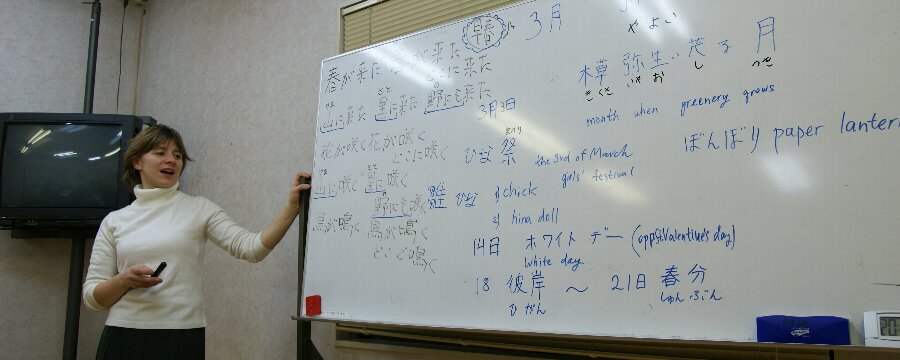 春が来た 春が来た
どこに来た
山に来た 里に来た
野にも来た
花が咲く花が咲く
どこに咲く
山に咲く 里に咲く
野にも咲く
鳥が鳴く 鳥が鳴く
どこで鳴く
早春 3月
やよい
木草 弥生い茂る 月
きくさ いや お し つき
month when greenery grows
3月3日
まつり
ひな 祭 the 3rd of March
girls' festival
ぼんぼり paper lantern
雛 ひな 1) chick
2) hina doll
14日 ホワイト デー (opp.St.Valentine's day)
white day
18 彼岸 ~ 21日 春分
ひがん しゅんぶん